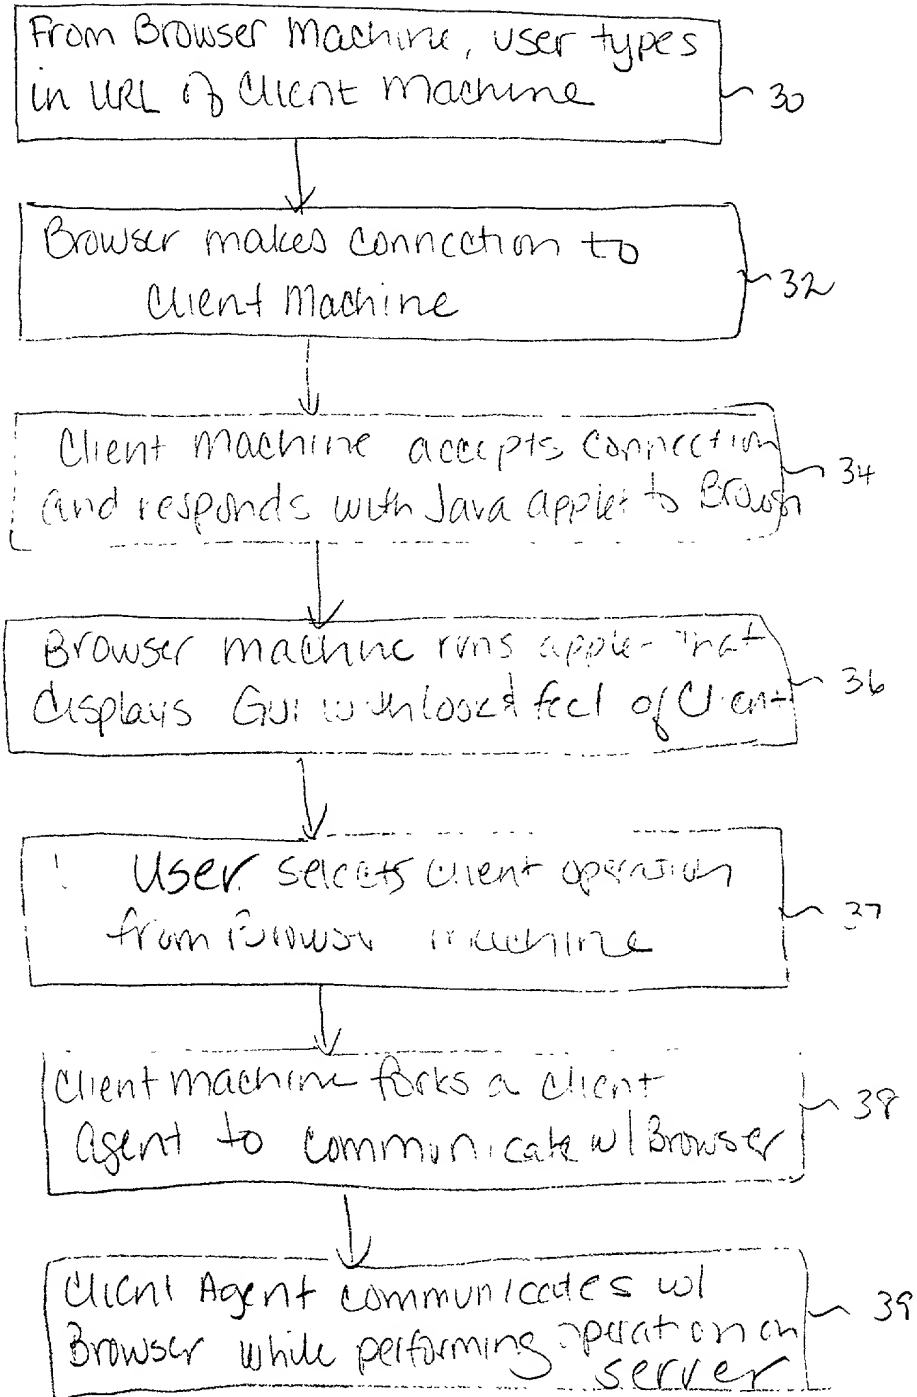 From Browser Machine, user types
in URL of Client Machine
30
Browser makes connection to
Client Machine
32
Client Machine accepts connection
and responds with Java applet to Brows
34
Browser machine runs applet that
displays GUI with look & feel of Client
36
User selects client operation
from Browser machine
37
Client machine forks a client
agent to communicate w/ Browser
38
Client Agent communicates w/
Browser while performing operation on
server
39